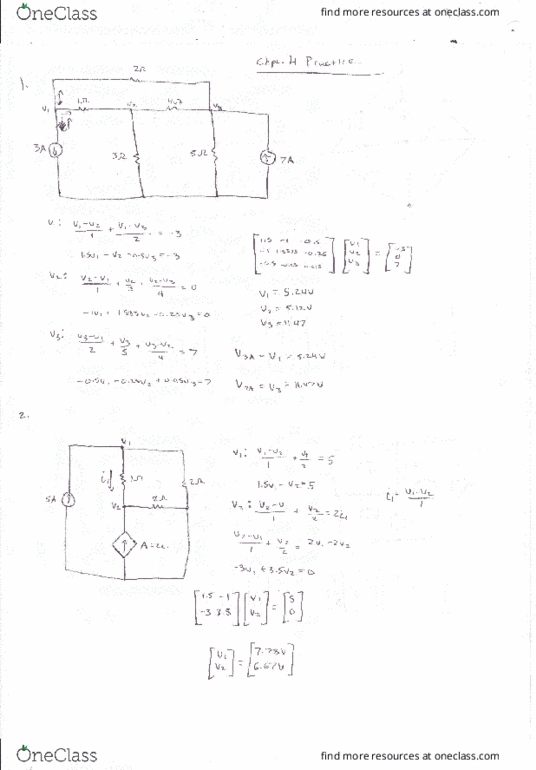 OneClass
find more resources at oneclass.com
Chpt. 4 Practice
1.
2Ω
V1 1Ω V2 4Ω V3
3A 3Ω 5Ω 7A
V1: (V1-V2)/1 + (V1-V3)/2 = -3
1.5V1 - V2 - 0.5V3 = -3
V2: (V2-V1)/1 + V2/3 + (V2-V3)/4 = 0
-1V1 + 1.583V2 - 0.25V3 = 0
V3: (V3-V1)/2 + V3/5 + (V3-V2)/4 = 7
-0.5V1 - 0.25V2 + 0.95V3 = 7
[V1 V2 V3] = [-3 0 7]
V1 = 5.24V
V2 = 5.12V
V3 = 11.47
V3A = V1 = 5.24V
V7A = V3 = 11.47V
2.
V1
5A i1 1Ω 2Ω
V2 2Ω
A=2i
V1: (V1-V2)/1 + V1/2 = 5
1.5V1 - V2 = 5
i1 = (V1-V2)/1
V2: (V2-V1)/1 + V2/2 = 2i1
(V2-V1)/1 + V2/2 = 2V1-2V2
-3V1 + 3.5V2 = 0
[1.5 -1] [V1] = [5]
[-3 3.5] [V2] = [0]
[V1] = [7.78V]
[V2] = [6.67V]
OneClass
find more resources at oneclass.com